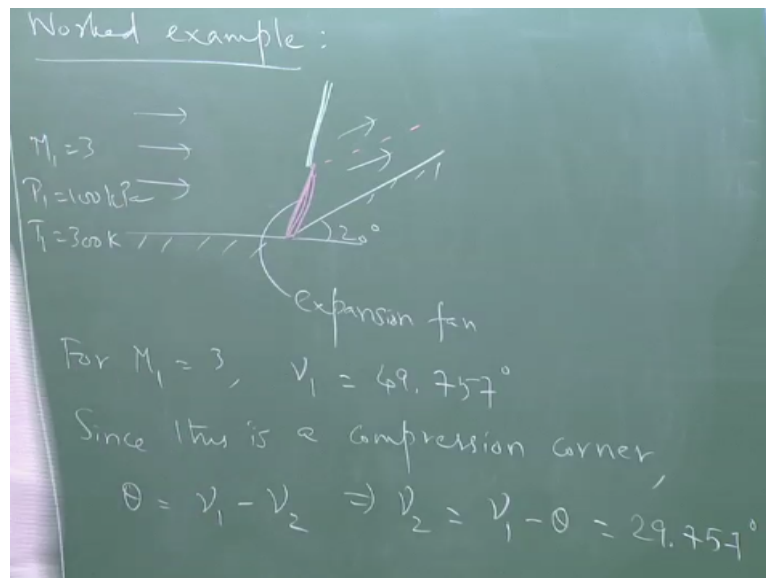 Worked example :
M₁ = 3
P₁ = 100 kPa
T₁ = 300 K
20°
expansion fan
For M₁ = 3, ν₁ = 49.757°
Since this is a compression corner,
θ = ν₁ - ν₂ ⇒ ν₂ = ν₁ - θ = 29.757°